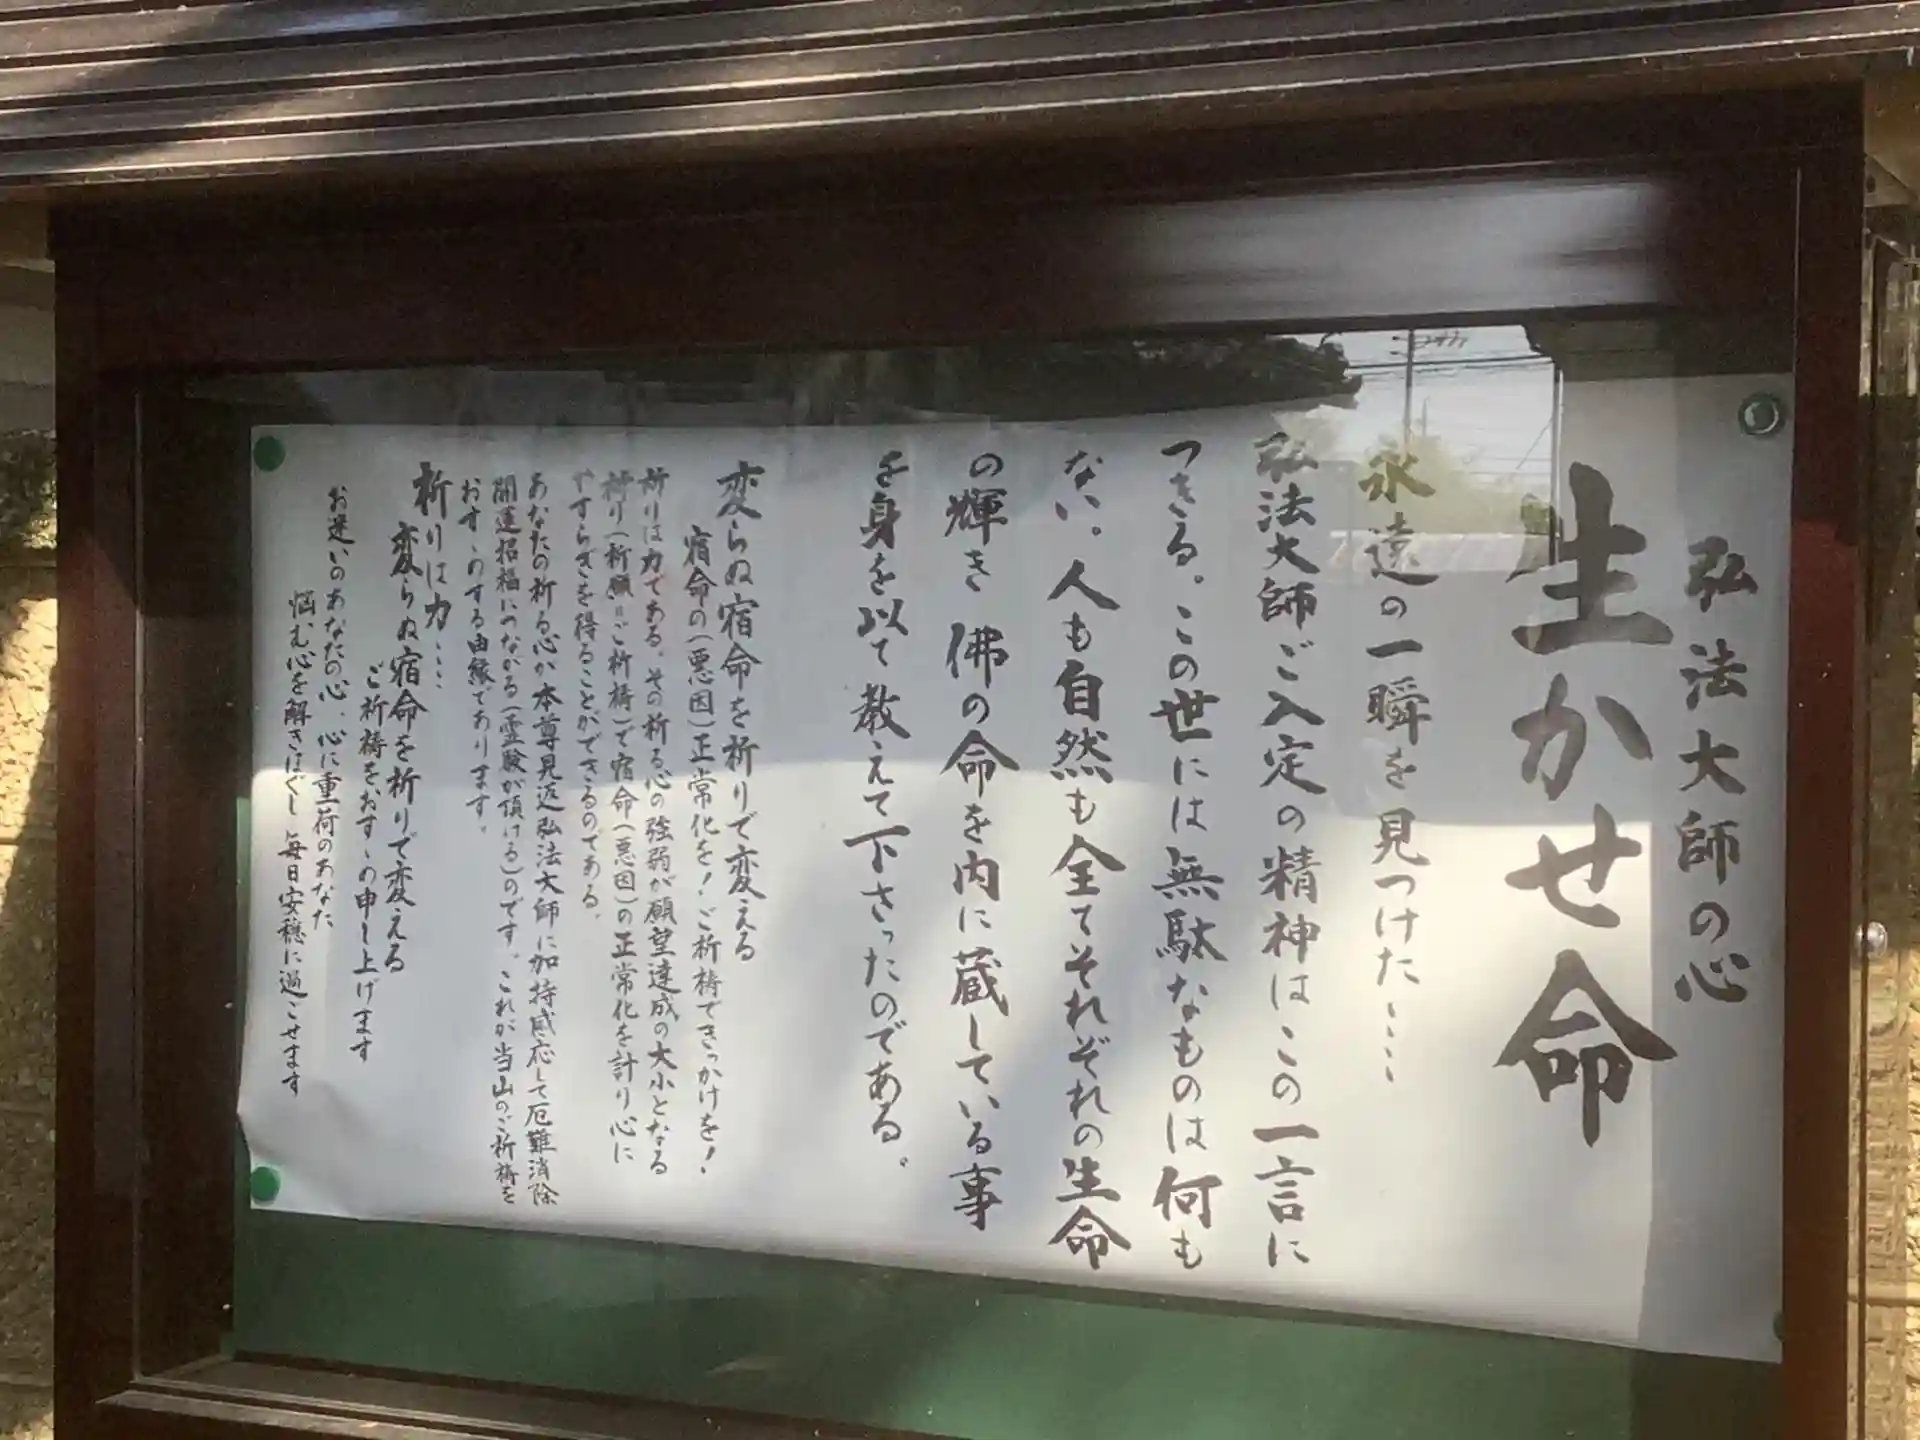 弘法大師の心
生かせ命
永遠の一瞬を見つけた……
弘法大師ご入定の精神はこの一言に
つきる。この世には無駄なものは何も
ない。人も自然も全てそれぞれの生命
の輝き 佛の命を内に蔵している事
を身を以て教えて下さったのである。
変らぬ宿命を祈りで変える
宿命の(悪因)正常化を!ご祈祷できっかけを!
祈りは力である。その祈る心の強弱が願望達成の大小となる
祈り(祈願=ご祈祷)で宿命(悪因)の正常化を計り心に
やすらぎを得ることができるのである。
あなたの祈る心が本尊見返弘法大師に加持感応して厄難消除
開運招福につながる(霊験が頂ける)のです。これが当山のご祈祷を
おすゝめする由縁であります。
祈りは力……
変らぬ宿命を祈りで変える
ご祈祷をおすゝめ申し上げます
お迷いのあなたの心、心に重荷のあなた
悩む心を解きほぐし毎日安穏に過ごせます